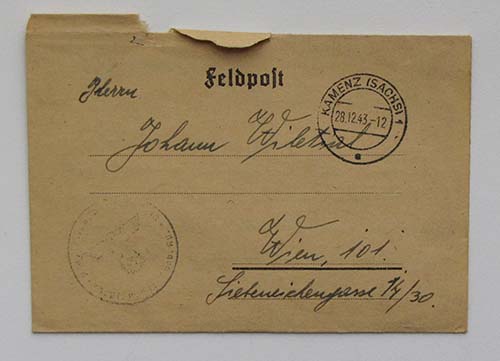 Feldpost
KAMENZ (SACHS) 1
28.12.43.-12
a
Herrn
Johann
Wien, 101.
Siebeneichengasse 17/30.